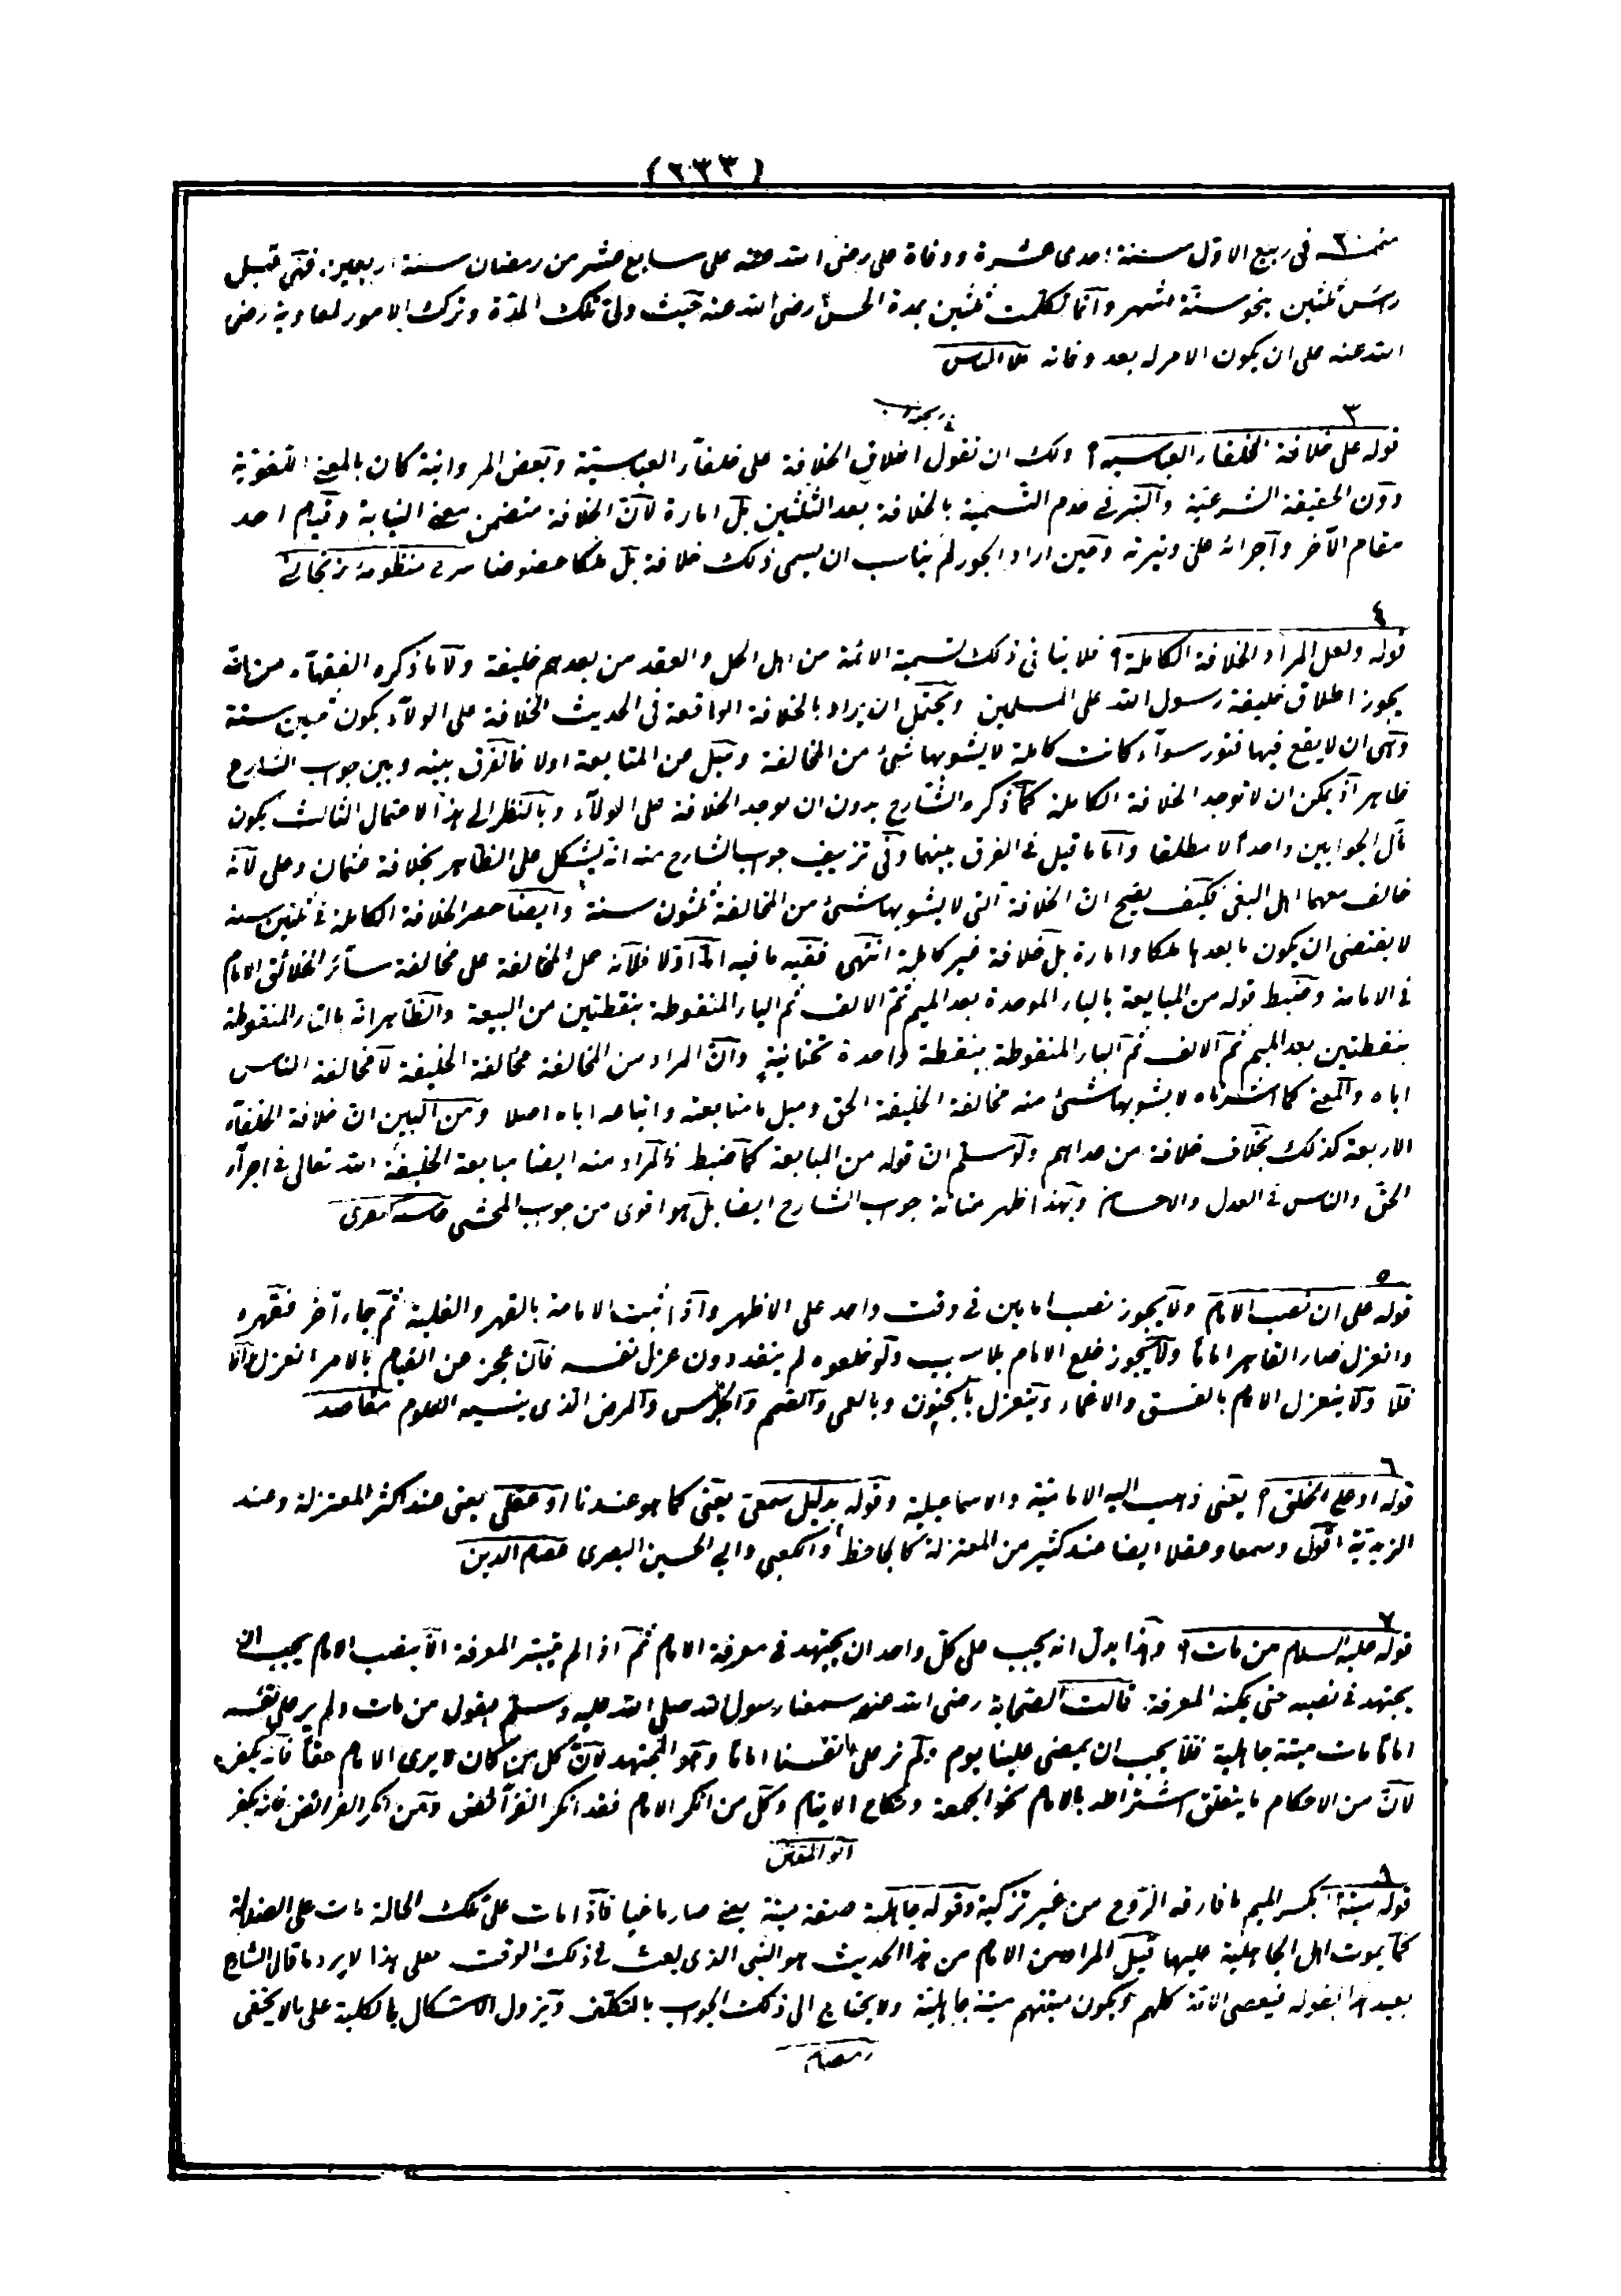 (٢٣٣)
في ربيع الاول سنة احدى عشرة ووفاة علي رضي الله عنه على سابع عشر من رمضان سنة اربعين فهي قبيل
رأس ثلثين بنحو ستة اشهر وانما تكملت ثلثين بمدة الحسن رضي الله عنه حيث ولي تلك المدة وترك الامور لمعاوية رضي
الله عنه على ان يكون الامر له بعد وفاته
٣
قوله على خلافة الخلفاء العباسية ولك ان تقول اطلاق الخلافة على خلفاء العباسية وبعض المروانية كان بالمعنى اللغوية
دون الحقيقة الشرعية والسر في عدم التسمية بالخلافة بعد الثلثين بل امارة لان الخلافة متضمن معنى النيابة وقيام احد
مقام الآخر واجرائه على وتيرته وحين اراد الجور لم يناسب ان يسمى ذلك خلافة بل ملكا عضوضا
٤
قوله ولعل المراد الخلافة الكاملة فلا ينافي ذلك تسمية الائمة من اهل الحل والعقد من بعدهم خليفة ولا ما ذكره الفقهاء من انه
يجوز اطلاق خليفة رسول الله على المسلمين ويحتمل ان يراد بالخلافة الواقعة في الحديث الخلافة على الولاء يكون ثلثين سنة
وهي ان لا يقع فيها فتور سواء كانت كاملة لا يشوبها شئ من المخالفة وميل عن المتابعة اولا فالفرق بينه وبين جواب الشارح
ظاهر اذ يمكن ان لا توجد الخلافة الكاملة كما ذكره الشارح بدون ان يوجد الخلافة على الولاء وبالنظر الى هذا الاحتمال الثالث يكون
مآل الجوابين واحدا لا مطلقا واما ما قيل في الفرق بينهما وفي تزييف جواب الشارح منه انه يشكل على الظاهر بخلافة عثمان وعلي لانه
خالف معهما اهل البغي فكيف يصح ان الخلافة التي لا يشوبها شئ من المخالفة ثلثون سنة وايضا حصر الخلافة الكاملة في ثلثين سنة
لا يقتضي ان يكون ما بعدها ملكا وامارة بل خلافة غير كاملة انتهى ففيه ما فيه اما اولا فلانه حمل المخالفة على مخالفة سائر الخلائق الامام
في الامامة وضبط قوله من المبايعة بالباء الموحدة بعد الميم ثم الالف ثم الياء المنقوطة بنقطتين من البيعة والظاهر انه بالتاء المنقوطة
بنقطتين بعد الميم ثم الالف ثم الباء المنقوطة بنقطة واحدة تحتانية وان المراد من المخالفة مخالفة الخليفة لا مخالفة الناس
اياه والمعنى كما اشرناه لا يشوبها شئ منه مخالفة الخليفة الحق وميل ما متابعته واتباعه اياه اصلا ومن البين ان خلافة الخلفاء
الاربعة كذلك بخلاف خلافة من عداهم ولو سلم ان قوله من المبايعة كما ضبط فالمراد منه ايضا مبايعة الخليفة الله تعالى في اجراء
الحق والناس في العدل والاحسان وبهذا ظهر متانة جواب الشارح ايضا بل هو اقوى من جواب المحشي
٥
قوله على ان نصب الامام ولا يجوز نصب امامين في وقت واحد على الاظهر واذا ثبت الامامة بالقهر والغلبة ثم جاء آخر فقهره
وانعزل صار القاهر اماما ولا يجوز خلع الامام بلا سبب ولو خلعوه لم ينفذ دون عزل نفسه فان عجز عن القيام بالامر انعزل والا
فلا ولا ينعزل الامام بالفسق والاغماء وينعزل بالجنون وبالعمى والصمم والخرس والمرض الذي ينسيه العلوم مقاصد
٦
قوله او على الخلق يعني ذهب اليه الامامية والاسماعيلية وقوله بدليل سمعي يعني كما هو عندنا او عقلي يعني عند اكثر المعتزلة وعند
الزيدية اقول وسمعا وعقلا ايضا عند كثير من المعتزلة كالجاحظ والكعبي وابي الحسين البصري عصام الدين
٧
قوله عليه السلام من مات وهذا يدل انه يجب على كل واحد ان يجتهد في معرفة الامام ثم اذا لم يتيسر المعرفة الا بنصب الامام يجب ان
يجتهد في نصبه حتى يمكنه المعرفة قالت الصحابة رضي الله عنهم سمعنا رسول الله صلى الله عليه وسلم يقول من مات ولم ير على نفسه
اماما مات ميتة جاهلية فلا يجب ان يمضي علينا يوم ولم نر على انفسنا اماما وهو المجتهد لان كل من كان لا يرى الامام حقا فانه يكفر
لان من الاحكام ما يتعلق اشتراطه بالامام نحو الجمعة ونكاح الايتام وكل من انكر الامام فقد انكر الفرائض ومن انكر الفرائض فانه يكفر
٨
قوله ميتة بكسر الميم ما فارقه الروح من غير تزكية وقوله جاهلية صفة ميتة يعني صار باغيا فاذا مات على تلك الحالة مات على الضلالة
كما يموت اهل الجاهلية عليها قيل المراد من الامام من هذا الحديث هو النبي الذي بعث في ذلك الوقت فعلى هذا لا يرد ما قال الشارح
بعيد هذا بقوله فيعصى الامة كلهم ويكون ميتتهم ميتة جاهلية ولا يحتاج الى ذلك الجواب بالتكلف ويزول الاشكال بالكلية على ما لا يخفى
رمضان